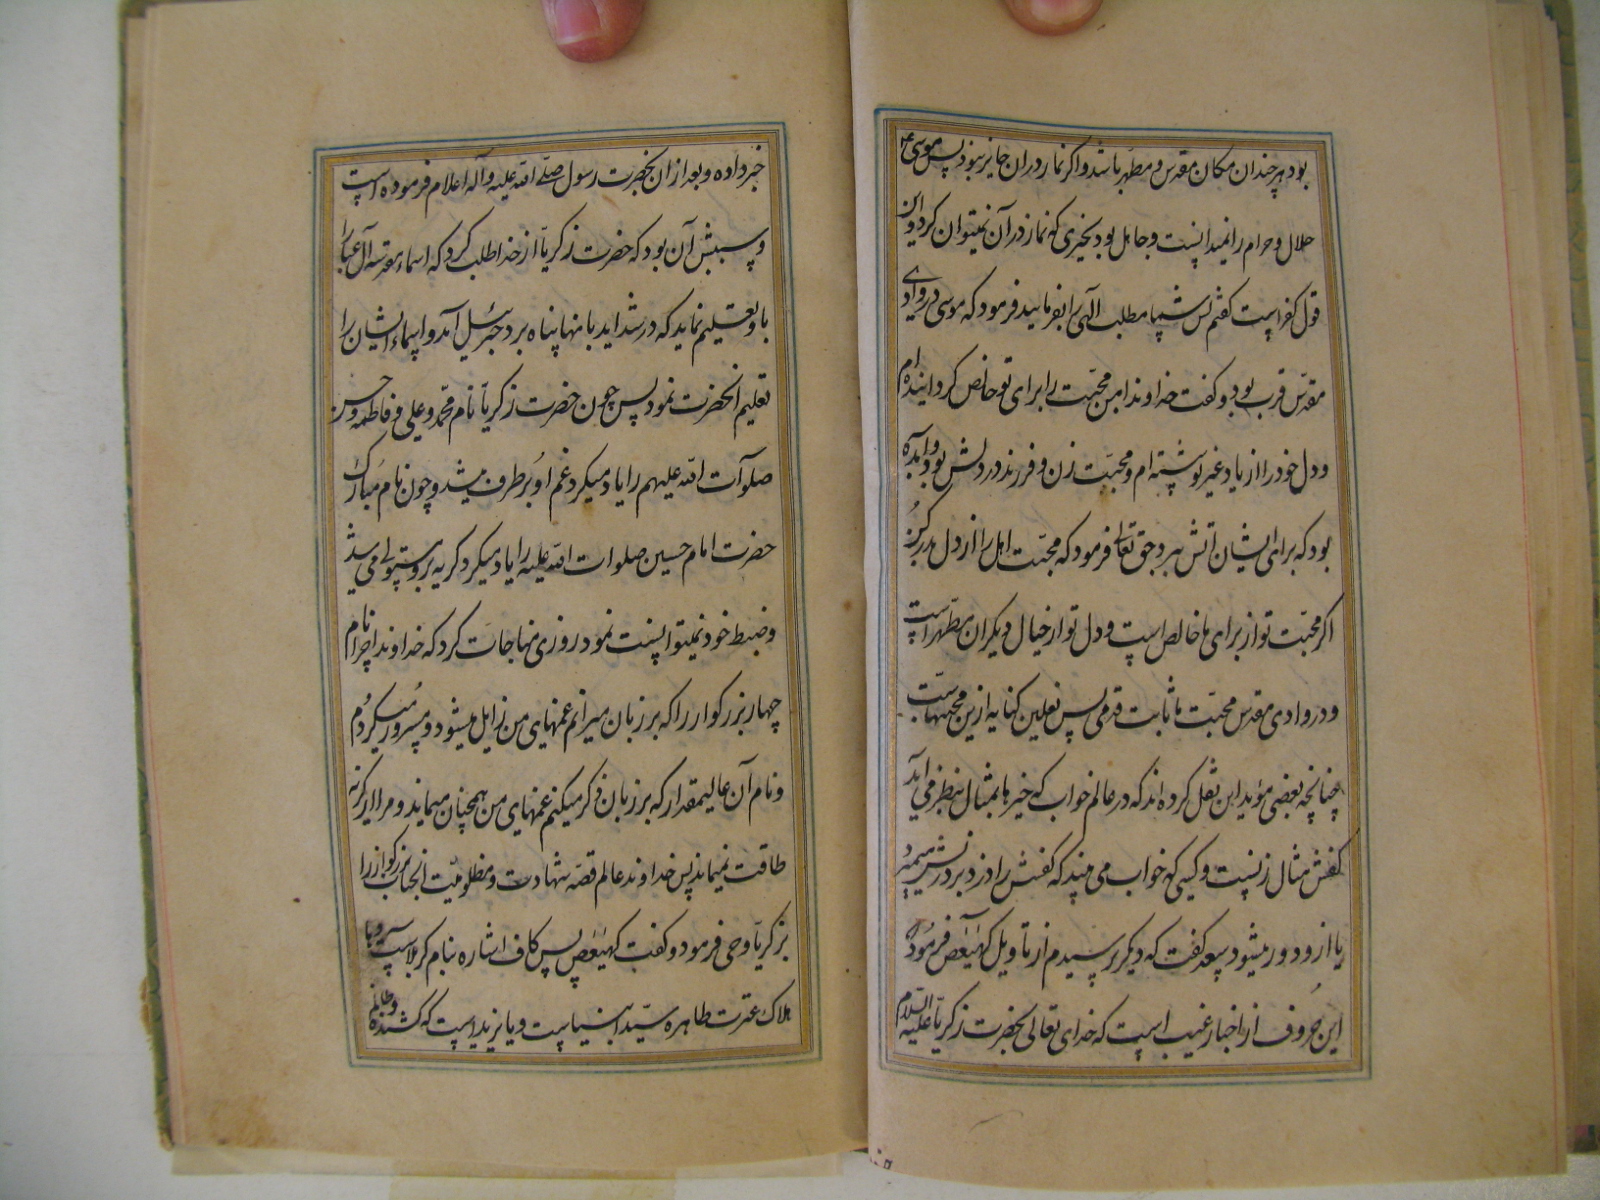 بود هر چند ان مکان مقدس و مطهر باشد و اگر نماز در ان جایز نبود پس موسی ع
حلال و حرام را نمیدانست و جاهل بود بچیزی که نماز در آن نمیتوان کرد و این
قول کفر است گفتم پس شما مطلب الهی را بفرمائید فرمود که موسی در وادی
مقدّس قرب بود و گفت خداوندا من محبّت را برای تو خالص گردانیده ام
و دل خود را از یاد غیر تو شسته ام و محبّت زن و فرزند در دلش بود و آمده
بود که برای ایشان آتش ببرد حق تعالی فرمود که محبّت اهل را از دل بدر کن
اگر محبّت تو از برای ما خالص است و دل تو از خیال دیگران مطهر است
و در وادی مقدس محبّت ما ثابت قدمی پس نعلین کنایه ازین محبتهاست
چنانچه بعضی مؤید این نقل کرده اند که در عالم خواب که چیزها بمثال بنظر می آید
کفش مثال زنست و کسی که خواب می بیند که کفش را دزد برد زنش میمیرد
یا از و دور میشود سعد گفت که دیگر پرسیدم از تاویل کهیعص فرمود که
این حروف از اخبار غیب است که خدای تعالی بحضرت زکریا علیه السلام
خبر داده و بعد از ان بحضرت رسول صلّی الله علیه و آله اعلام فرموده است
و سببش آن بود که حضرت زکریّا از خدا طلب کرد که اسماء مقدسه آل عبا را
باو تعلیم نماید که در شداید بانها پناه برد جبرئیل آمد و اسماء ایشان را
تعلیم انحضرت نمود پس چون حضرت زکریّا نام محمّد و علی و فاطمه و حسن
صلوات الله علیهم را یاد میکرد غم او بر طرف میشد و چون نام مبارک
حضرت امام حسین صلوات الله علیه را یاد میکرد گریه بر و مستولی می شد
و ضبط خود نمیتوانست نمود روزی مناجات کرد که خداوندا چرا نام
چهار بزرگوار را که بر زبان میرانم غمهای من زایل میشود و مسرور میگردم
و نام آن عالیمقدار که بر زبان ذکر میکنم غمهای من همچنان میماند و مرا از گریه
طاقت نمیماند پس خداوند عالم قصّه شهادت و مظلومیّت انجناب بزرگوار را
بزکریّا وحی فرمود و گفت کهیعص پس کاف اشاره بنام کربلاست و ها
هلاک عترت طاهره سیّد انبیاست و یا یزید است که کشنده و ظالم